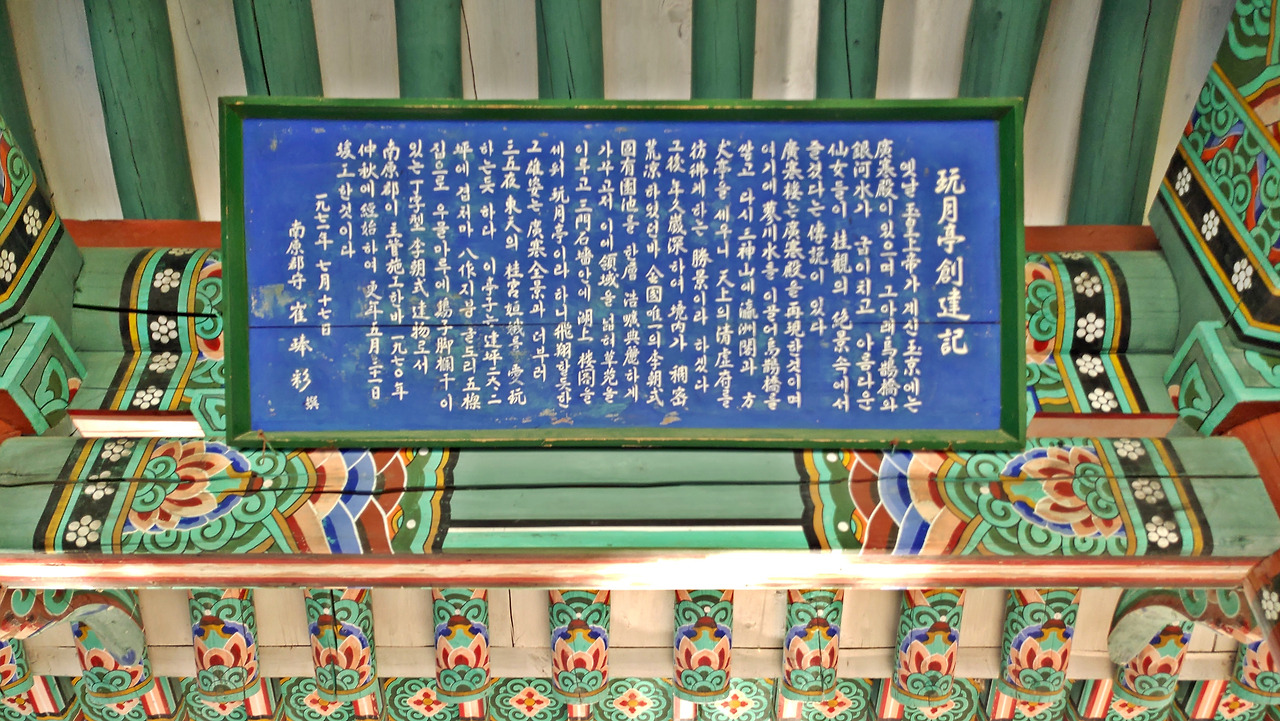 玩月亭創建記
옛날 玉皇上帝가 계신 玉京에는
廣寒殿이 있으며 그 아래 烏鵲橋와
銀河水가 굽이치고 아름다운
仙女들이 桂觀의 絶景속에서
즐겼다는 傳說이 있다
廣寒楼는 廣寒殿을 再現한 것이며
여기에 蓼川水를 이끌어 烏鵲橋를
쌓고 다시 三神山에 瀛洲閣과 方
丈亭을 세우니 天上의 淸虛府를
彷彿케 하는 勝景이라 하겠다
그後 年久歲深하여 境内가 稠密
荒凉하였던바 全國唯一의 李朝式
固有園池을 한層 浩曠典麗하게
가꾸고저 이에 領域을 넓혀 草苑을
이루고 三門石墻안에 湖上 樓閣을
세워 玩月亭이라 하니 飛翔할듯한
그 雄姿는 廣寒全景과 더부러
三五夜 東天의 桂宮姮娥를 雯玩
하는듯 하다 이 亭子는 建坪 二六·二
坪에 겹처마 八作지붕 골도리 五樑
집으로 우물마루에 鷄子脚欄干이
있는 丁字型 李朝式 建物로서
南原郡이 主管施工한바 一九七○年
仲秋에 經始하여 更年五月三十一日
竣工한것이다
一九七一年 七月十七日
南原郡守 崔 琫 彩 撰